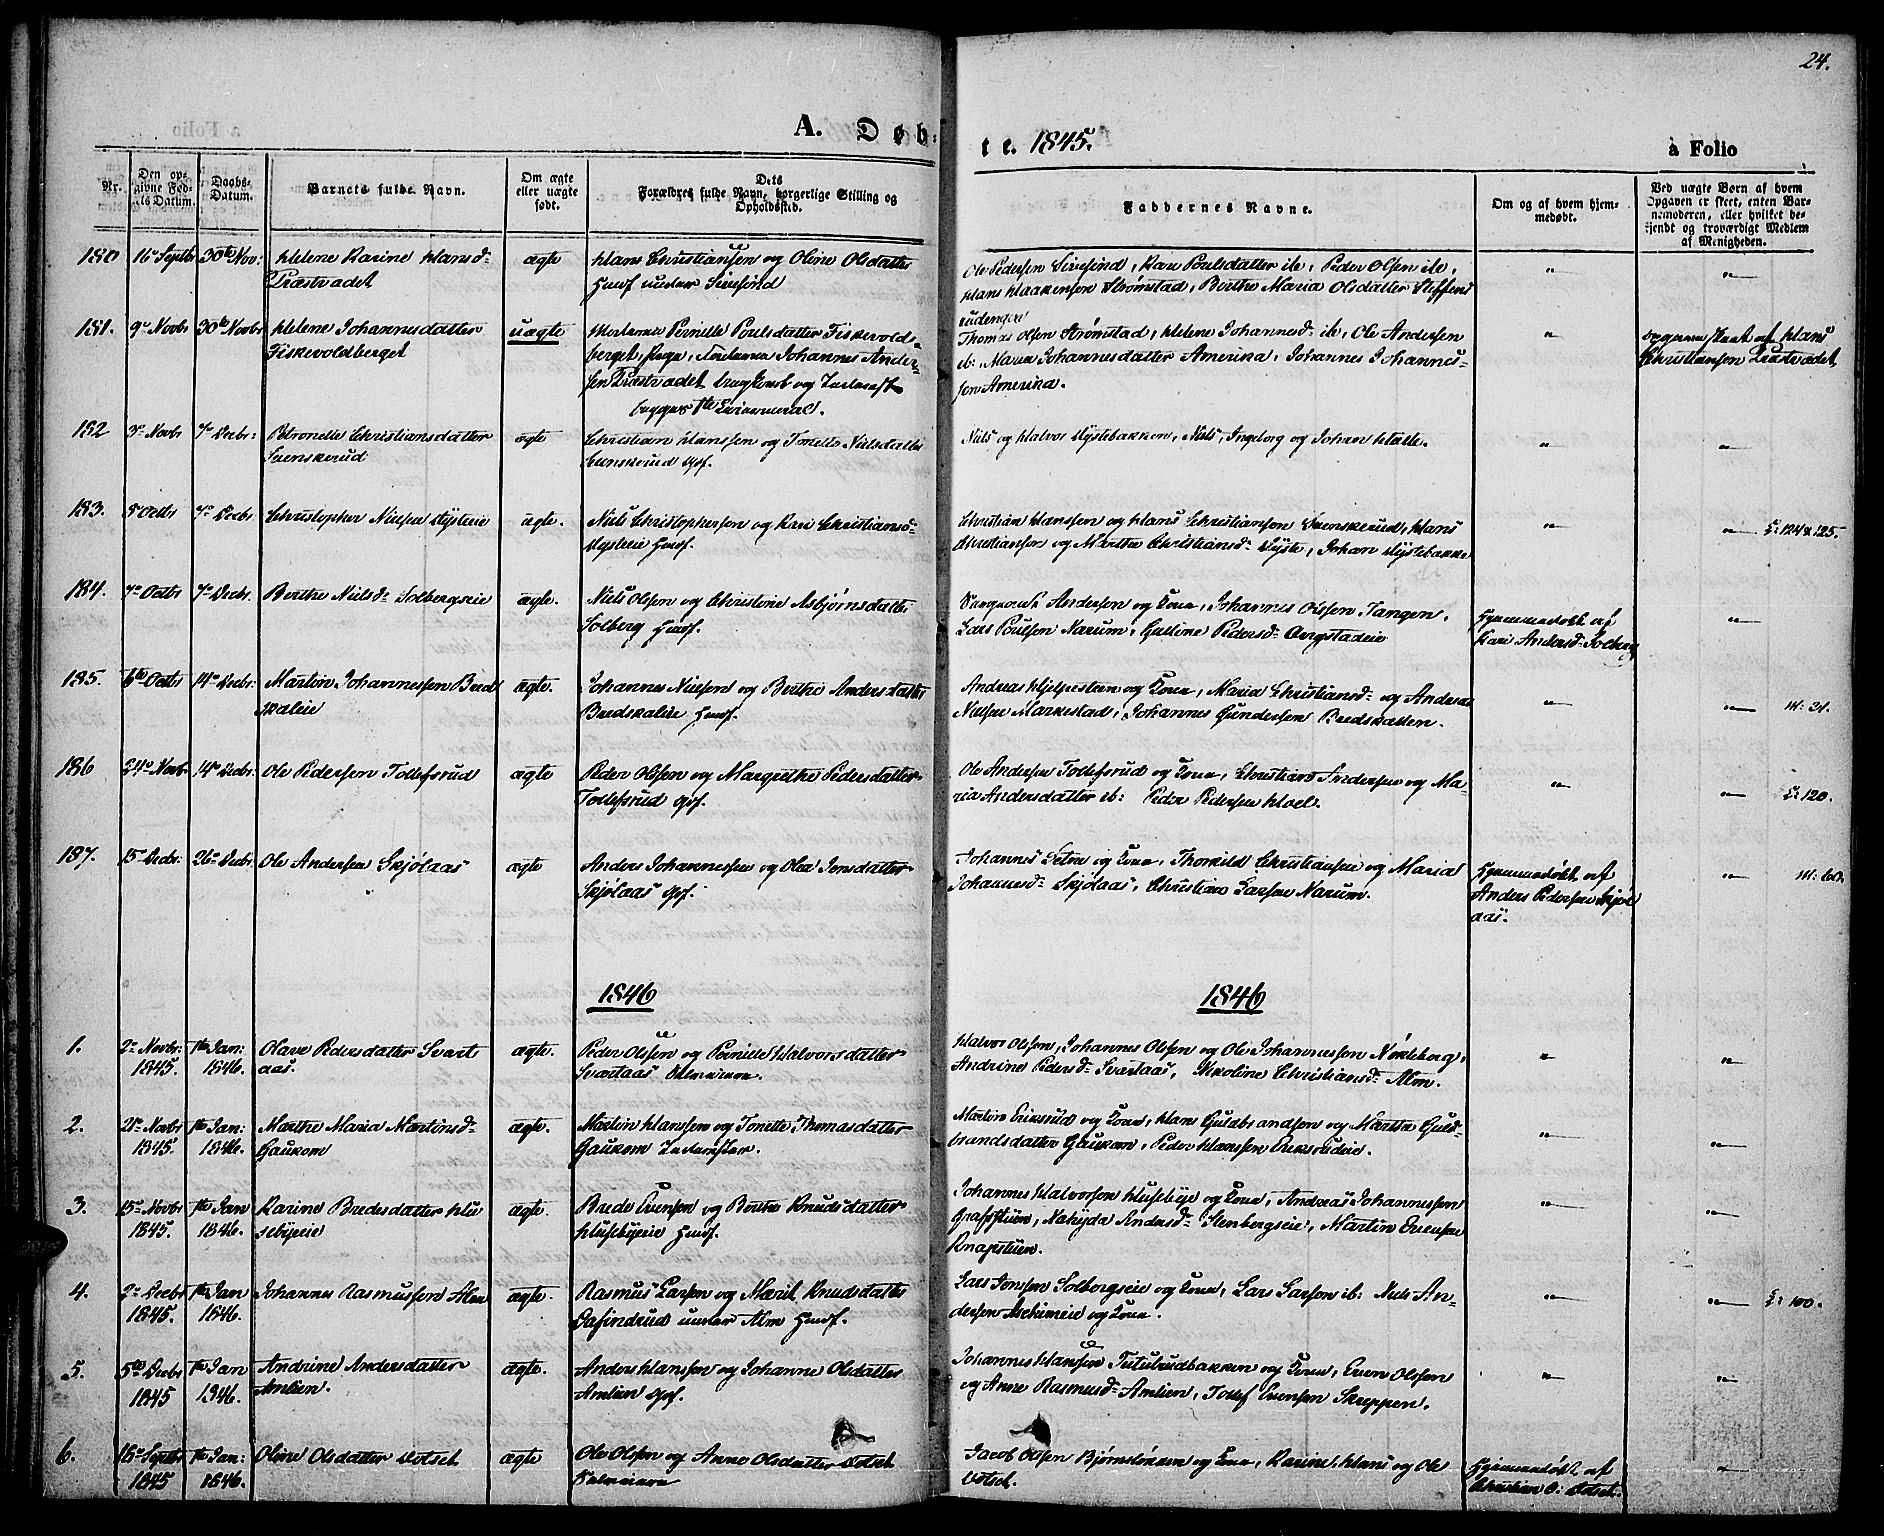 24.
A. Døb-
te. 1845.
à Folio
Nr.
Den op-
givne Fød-
sels Datum.
Daabs-
Datum.
Barnets fulde Navn.
Om ægte
eller uægte
født.
Dets
Forældres fulde Navn, borgerlige Stilling og
Opholdssted.
Faddernes Navne.
Om og af hvem hjem-
medøbt.
Ved uægte Børn af hvem
Opgaven er skeet, enten Bar-
nemoderen, eller hvilket be-
kjendt og troværdigt Medlem
af Menigheden.
180 16 Septbr 30te Nov: Helene Karine Hansd:
Præstvadet
ægte
Hans Christiansen og Oline Olsdatter
Huusf under Sivesind
Ole Pedersen Sivesind, Kari Poulsdatter ib, Peder Olsen ib,
Hans Haakensen Strømstad, Berthe Maria Olsdatter Steffens
rudengen
181. 9 Novbr 30te Novbr Helene Johannesdatter
Fiskevoldberget
uægte
Pernille Poulsdatter Fiskevolds-
berget, Pige, Johannes Ander-
sen Præstvadet Ungkarl og Inderst
begges 1ste Leiermaal.
Thomas Olsen Strømstad, Helene Johannesd: ib, Ole Andersen
ib: Maria Johannesdatter Amerika, Johannes Johannes-
sen Amerika.
Opgaven skeet af Hans
Christiansen Præstvadet
182 3 Novbr 7 Decbr: Petronelle Christiansdatter
Svenskerud
ægte
Christian Hanssen og Tonette Nielsdatter
Svenskerud Gpf.
Niels og Halvor Hystebakken, Niels, Ingeborg og Johan Halle.
183. 8 Octbr 7 Decbr: Christopher Nielsen Hysteie
ægte.
Niels Christophersen og Kari Christiansd-
Hysteie Huusf.
Christian Hanssen og Hans Christiansen Svenskerud, Hans
Christiansen og Marthe Christiansd: Hyste, Johan Hystebakke
L: 124 & 125.
184. 7 Octbr 7 Decbr. Berthe Nielsd: Solbergseie
ægte.
Niels Olsen og Christine Asbjørnsdatter
Solberg Huusf.
Andersen og Kone, Johannes Olsen Tangen,
Lars Poulsen Narum, Gulline Pedersd:
Hjemmedøbt af
Kari Andersd: Solberg
185. 6te Octbr 14 Decbr: Martin Johannessen Bred
skaleie
ægte.
Johannes Nielsen og Berthe Andersdatter
Bredskaleie Huusf.
Andreas Hjelpesteen og Kone, Maria Christiansd: og Andreas
Nielsen Markestad, Johannes Gundersen Bredskallen.
M: 31.
186 24 Novbr 14 Decbr: Ole Pedersen Tollefsrud
ægte
Peder Olsen og Margrethe Pedersdatter
Tollefsrud Gpf.
Ole Andersen Tollefsrud og Kone, Christian Andersen og Ma-
ria Andersdatter ib: Peder Pedersen Hoel.
L: 120.
187. 15 Decbr: 26 Decbr: Ole Andersen Skjølaas
ægte
Anders Johannessen og Olea Jonsdatter
Skjølaas Gpf.
Johannes Setre og Kone, Thorkild Christiansen og Maria
Johannesd: Skjølaas, Christian Larsen Narum.
Hjemmedøbt af
Anders Pedersen Skjøl
aas.
M: 60.
1846
1846
1. 2 Novbr:
1845.
1te Jan:
1846.
Olave Pedersdatter Svart
aas.
ægte.
Peder Olsen og Pernille Halvorsdatter
Svartaas
Halvor Olsen, Johannes Olsen og Ole Johannessen Nørleberg,
Andrine Pedersd: Svartaas, Nikoline Christiansd: Alm.
2. 21 Novbr
1845.
1te Jan:
1846.
Marthe Maria Martinsd:
Gaukom
ægte.
Martin Hanssen og Tonette Thomasdatter
Gaukom Inderster.
Martin Eriksrud og Kone, Hans Guldbrandsen og Marthe Guld-
brandsdatter Gaukom, Peder Hanssen Eriksrudeie.
3. 15 Novbr
1845.
1te Jan
1846.
Karine Bredesdatter Hu
sebyeie
ægte.
Brede Evensen og Berthe Knudsdatter
Husebyeie Huusf.
Johannes Halvorsen Husebye og Kone, Andreas Johannessen
Grafstuen, Nahyda Andersd: Stenbergseie, Martin Evensen
Knapstuen.
4. 2 Decbr
1845.
1te Jan
1846.
Johannes Rasmussen Alm
ægte.
Rasmus Larsen og Marit Knudsdatter
Dafindrud under Alm Huusf.
Lars Jonsen Solbergseie og Kone, Lars Larsen ib: Niels An-
dersen og Kone.
L: 100.
5. 5te Decbr
1845
1te Jan
1846.
Andrine Andersdatter
Amlien.
ægte.
Anders Hanssen og Johanne Olsdatter
Amlien Gpf.
Johannes Hansen Tuturudbakken og Kone, Even Olsen
og Anne Rasmusd: Amlien, Tollef Evensen Skreppen.
6. 18 Septbr
1845
1te Jan:
1846.
Oline Olsdatter Dotset
ægte
Ole Olsen og Anne Olsdatter Dotset
Jacob Olsen Bjørnsløkken og Kone, Karine, Hans og Ole
Dotset.
Hjemmedøbt af
Christian O: Dotset.